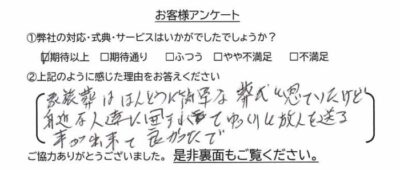 お客様アンケート
①弊社の対応・式典・サービスはいかがでしたでしょうか？
☑期待以上 □期待通り □ふつう □やや不満足 □不満足
②上記のように感じた理由をお答えください
家族葬はほんとうに簡単な葬式と思っていたけど
身近な人達に囲まれてゆっくり故人を送る
事が出来て良かったです
ご協力ありがとうございました。是非裏面もご覧ください。